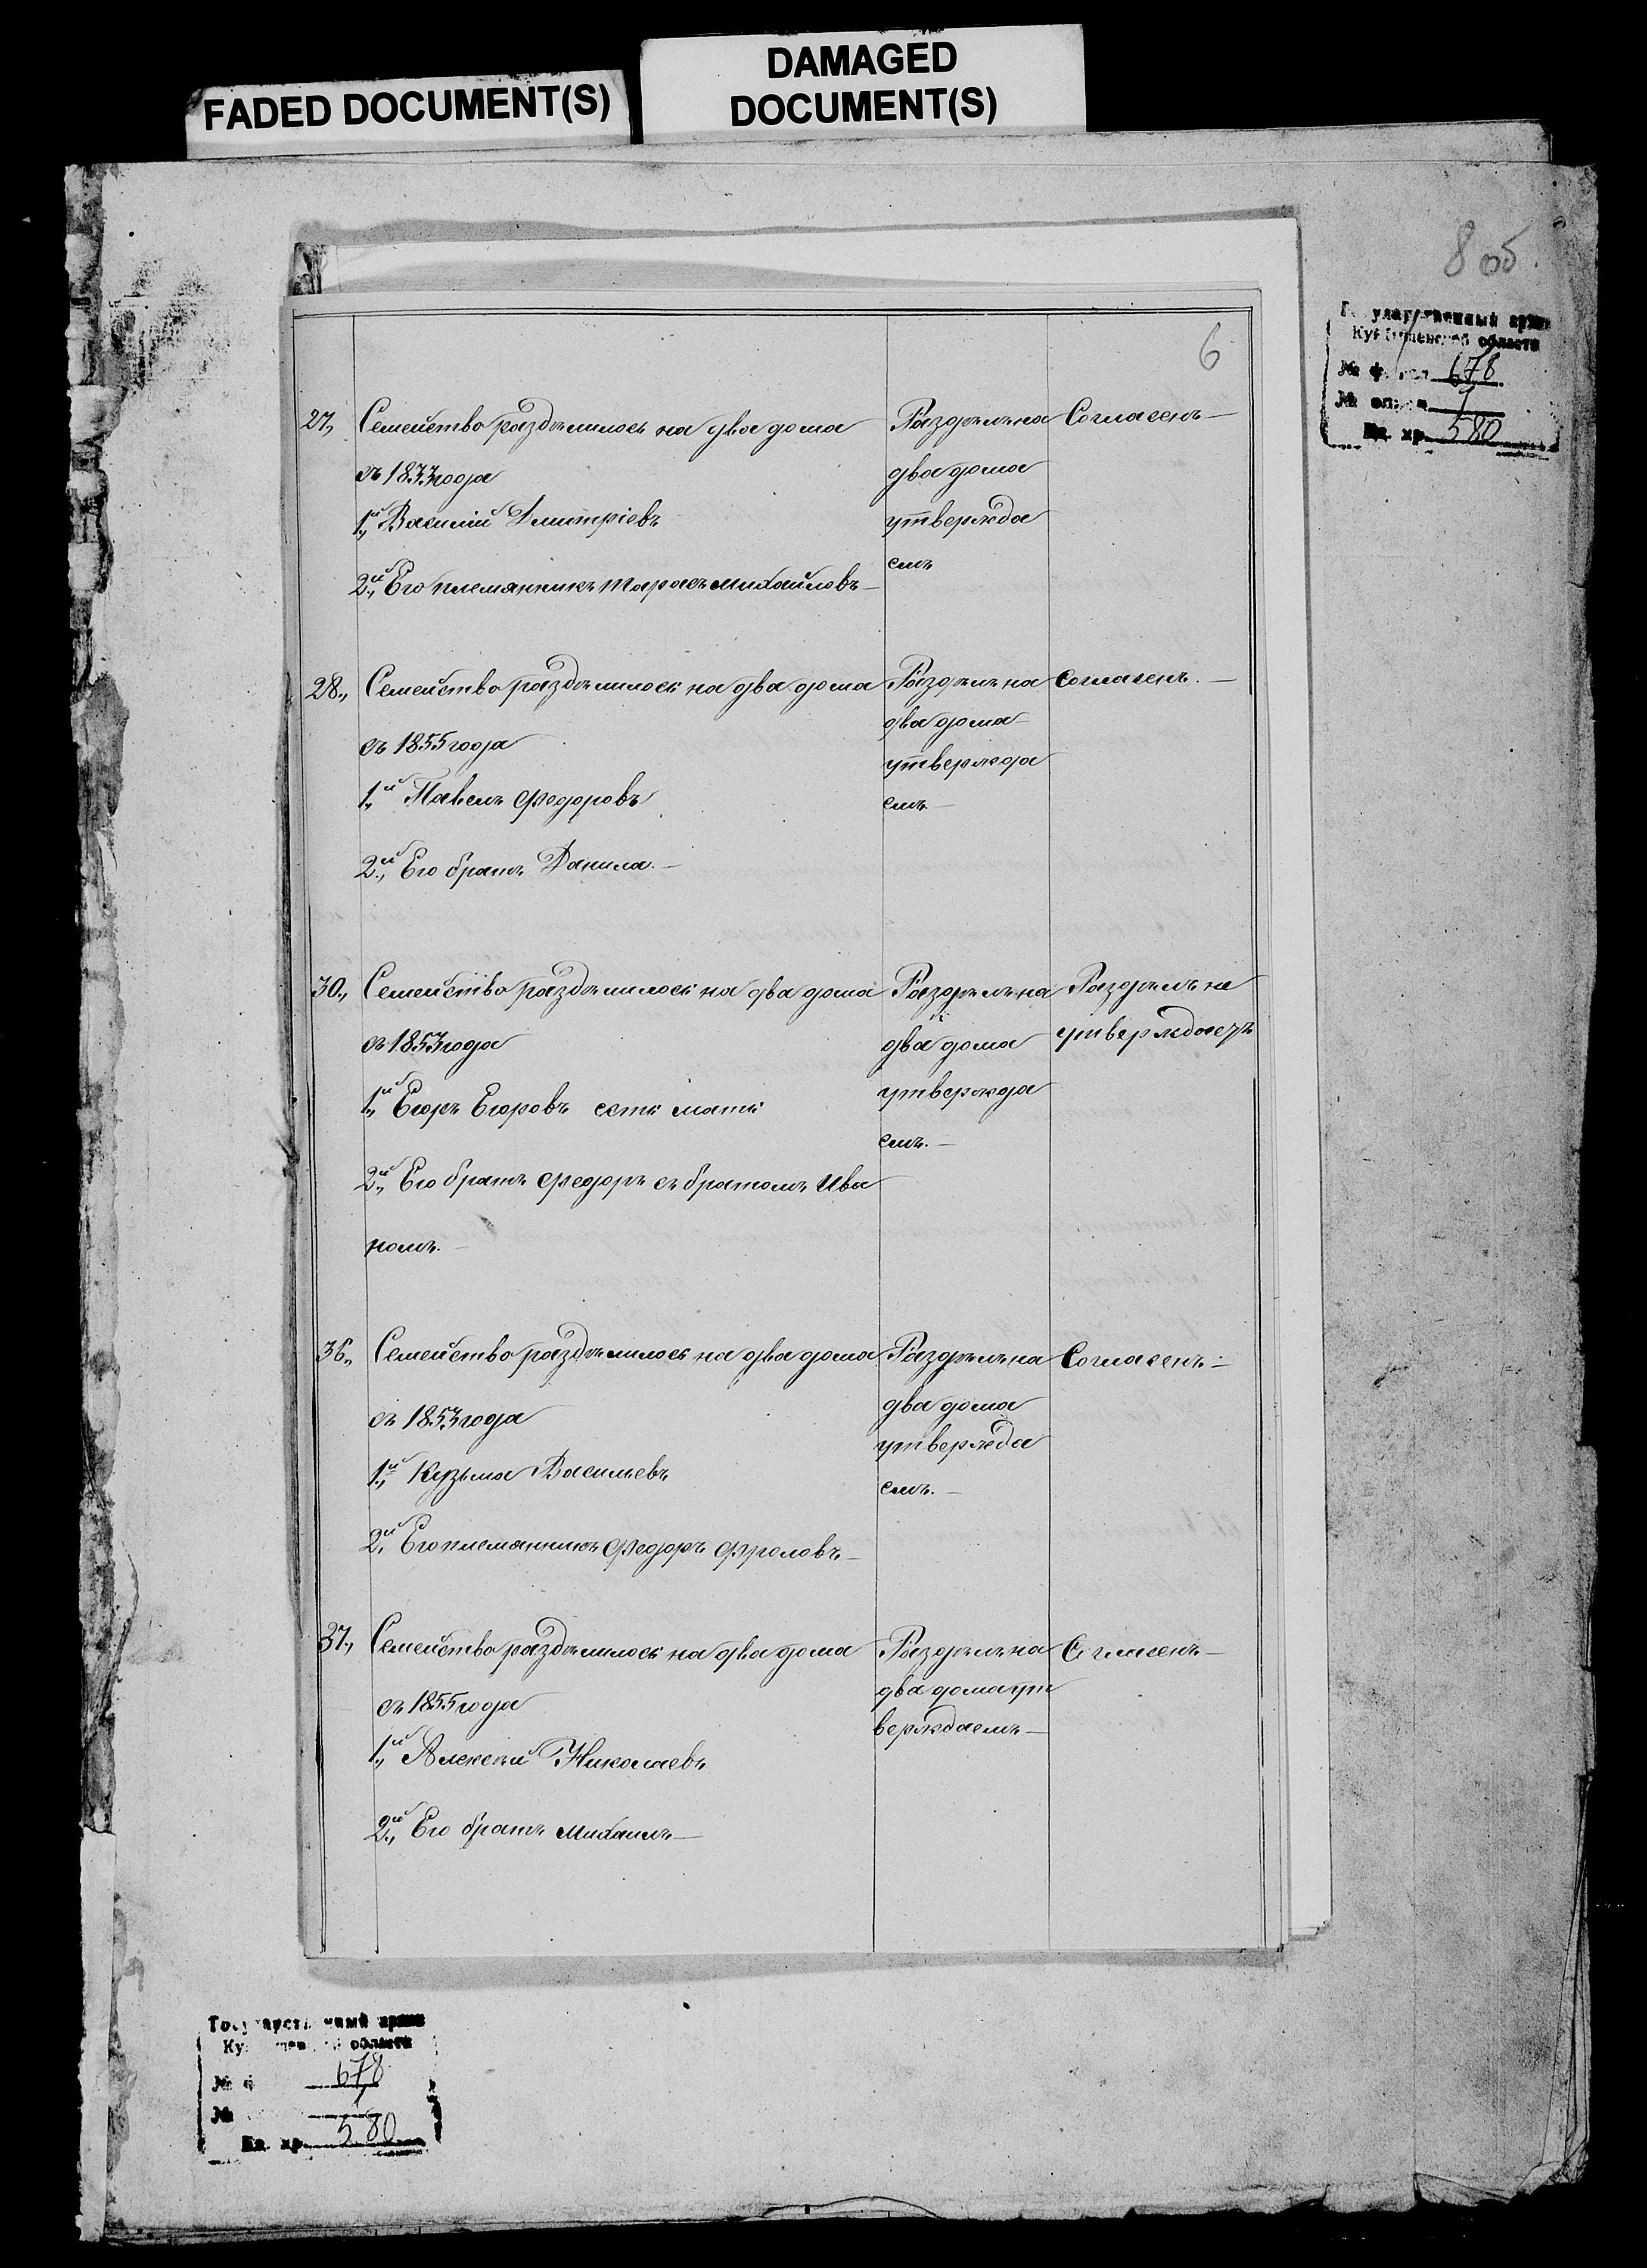 FADED DOCUMENT(S)
DAMAGED
DOCUMENT(S)
8 об.
Государственный архив
Куйбышевской области
№ фонда 678
№ описи 1
Ед. хр. 580
6
27., Семейство раздѣлилось на два дома
съ 1833 года
1й., Василий Дмитріевъ
2й., Его племянникъ Тарасъ Михайловъ —
Раздѣлъ на
два дома
утвержда
емъ
Согласенъ —
28., Семейство раздѣлилось на два дома
съ 1855 года
1й., Павелъ Федоровъ
2й., Его братъ Данила. —
Раздѣлъ на
два дома
утвержда
емъ. —
Согласенъ. —
30., Семейство раздѣлилось на два дома
съ 1853 года
1й., Егоръ Егоровъ есть мать
2й., Его братъ Федоръ съ братомъ Ива
номъ. —
Раздѣлъ на
два дома
утвержда
емъ. —
Раздѣлъ не
утверждаетъ
36., Семейство раздѣлилось на два дома
съ 1853 года
1й., Кузьма Васильевъ
2й., Его племянникъ Федоръ Фроловъ —
Раздѣлъ на
два дома
утвержда
емъ. —
Согласенъ. —
37., Семейство раздѣлилось на два дома
съ 1855 года
1й., Алексѣй Николаевъ
2й., Его братъ Михаилъ —
Раздѣлъ на
два дома ут
верждаемъ —
Согласенъ —
Государственный архив
Ку области
№ ф 678
№
Ед. хр. 580